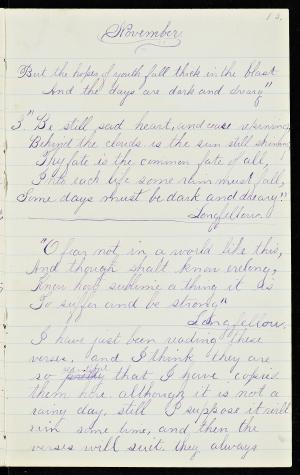 13.
November
But the hopes of youth fall thick in the blast
And the days are dark and dreary"
3." Be still, sad heart, and cease repining,
Behind the clouds is the sun still shining
Thy fate is the common fate of all,
Into each life some rain must fall,
Some days must be dark and dreary."
Longfellow.
"O fear not in a world like this,
And thou shalt know erelong,
Know how sublime a thing it is
To suffer and be strong"
Longfellow.
I have just been reading these
verses, and I think they are
so that I have copied
them here although it is not a
rainy day, still I suppose it will
rain some time, and then the
verses will suit. they always